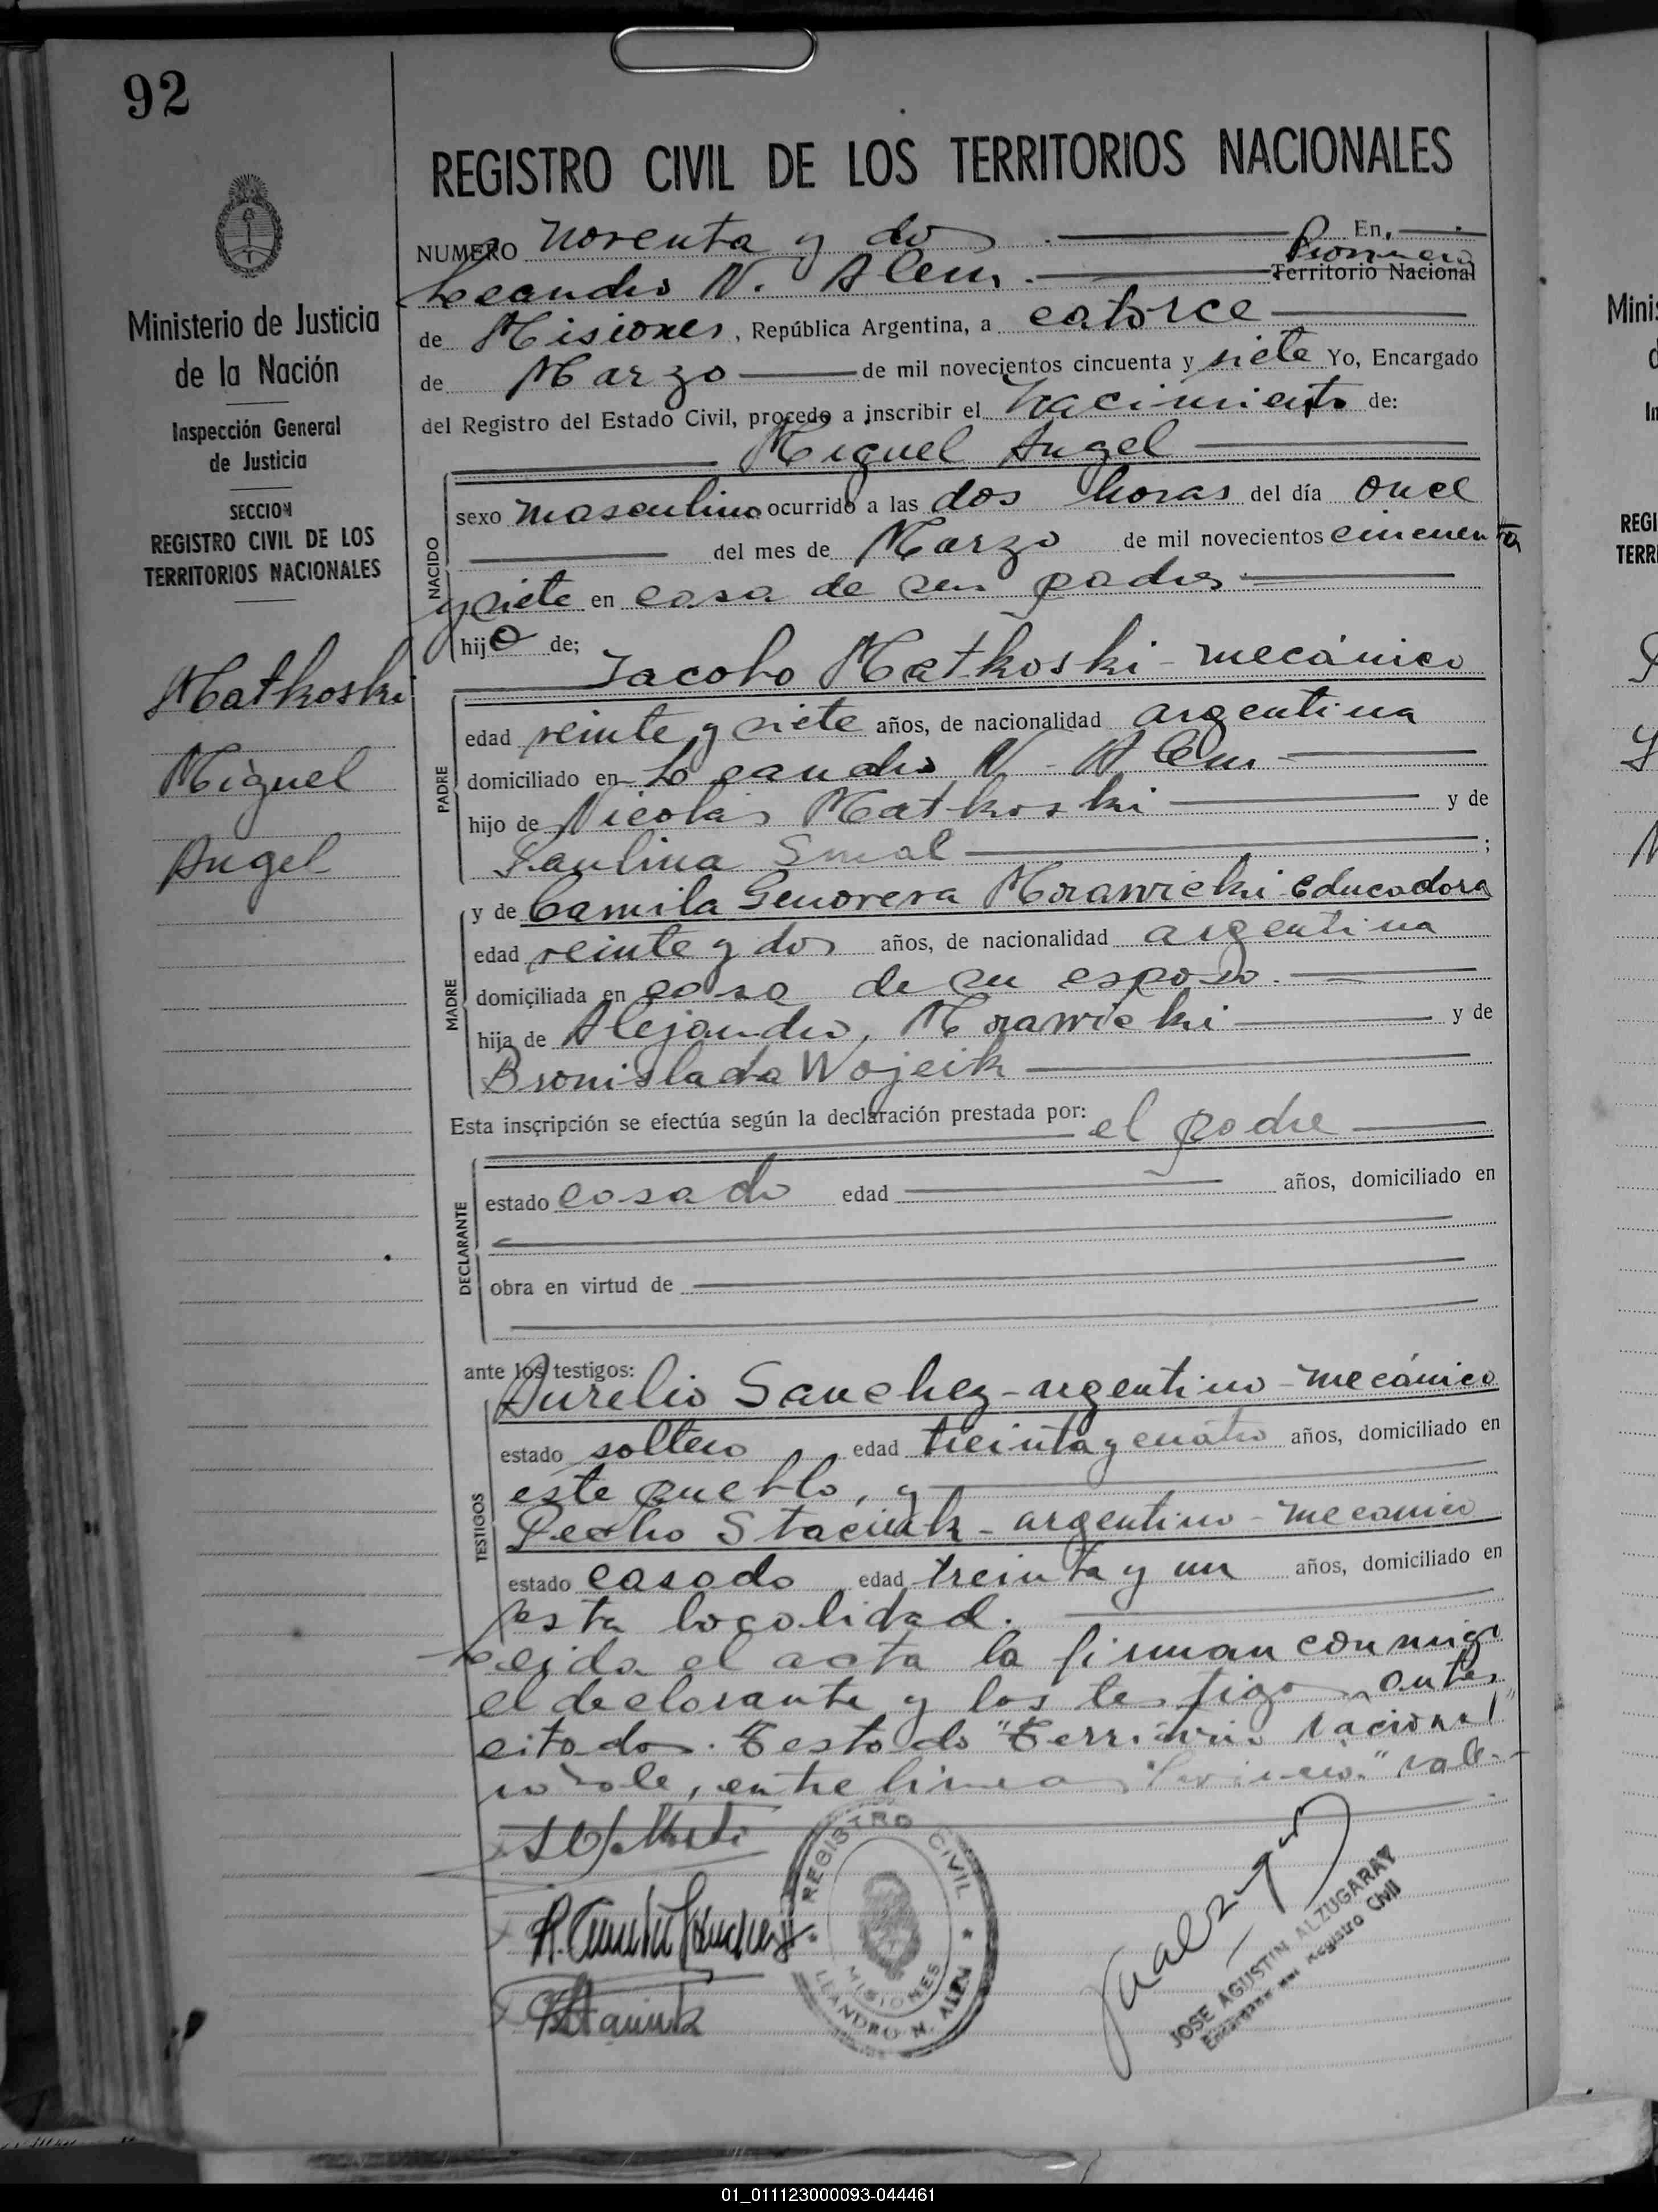 92
REGISTRO CIVIL DE LOS TERRITORIOS NACIONALES
NUMERO noventa y dos En
Provincia
Leandro N. Alem Territorio Nacional
de Misiones, República Argentina, a catorce
de Marzo de mil novecientos cincuenta y siete Yo, Encargado
del Registro del Estado Civil, procedo a inscribir el Nacimiento de:
Miguel Angel
Ministerio de Justicia
de la Nación
Inspección General
de Justicia
SECCION
REGISTRO CIVIL DE LOS
TERRITORIOS NACIONALES
Matkoski
Miguel
Angel
NACIDO
sexo masculino ocurrido a las dos horas del día once
del mes de Marzo de mil novecientos cincuenta
y siete en casa de sus padres
hijo de;
Jacobo Matkoski - mecánico
PADRE
edad veinte y siete años, de nacionalidad argentina
domiciliado en Leandro N. Alem
hijo de Nicolás Matkoski y de
Paulina Smal ;
MADRE
y de Camila Genoveva Morawicki Educadora
edad veinte y dos años, de nacionalidad argentina
domiciliada en casa de su esposo.
hija de Alejandro Morawicki y de
Bronislada Wojcik
Esta inscripción se efectúa según la declaración prestada por: el padre
DECLARANTE
estado casado edad años, domiciliado en
obra en virtud de
ante los testigos:
TESTIGOS
Aurelio Sanchez - argentino - mecánico
estado soltero edad treinta y cuatro años, domiciliado en
este pueblo, y
Pedro Staciuk - argentino - mecanico
estado casado edad treinta y un años, domiciliado en
esta localidad.
Leida el acta la firman conmigo
el declarante y los testigos antes
citados. Testado "Territorio Nacional"
no vale, entre lineas "Provincia" vale.
REGISTRO CIVIL
MISIONES
LEANDRO N. ALEM
JOSE AGUSTIN ALZUGARAY
Encargado del Registro Civil
Minis
REGI
TERRI
01_011123000093-044461